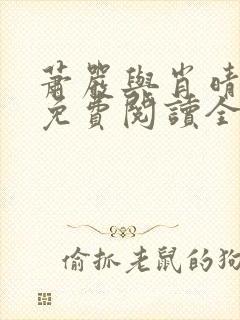 蕭嚴與肖晴
免費閱讀全
偷抓老鼠的狗